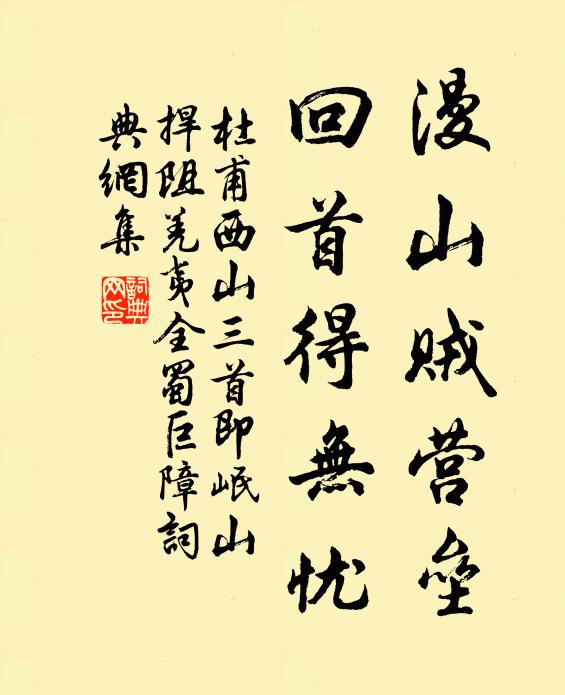 漫山贼营垒
回首得無忧
杜甫西山三首即岷山
捍阻羌夷全蜀巨障詞
典網集
詞典網印